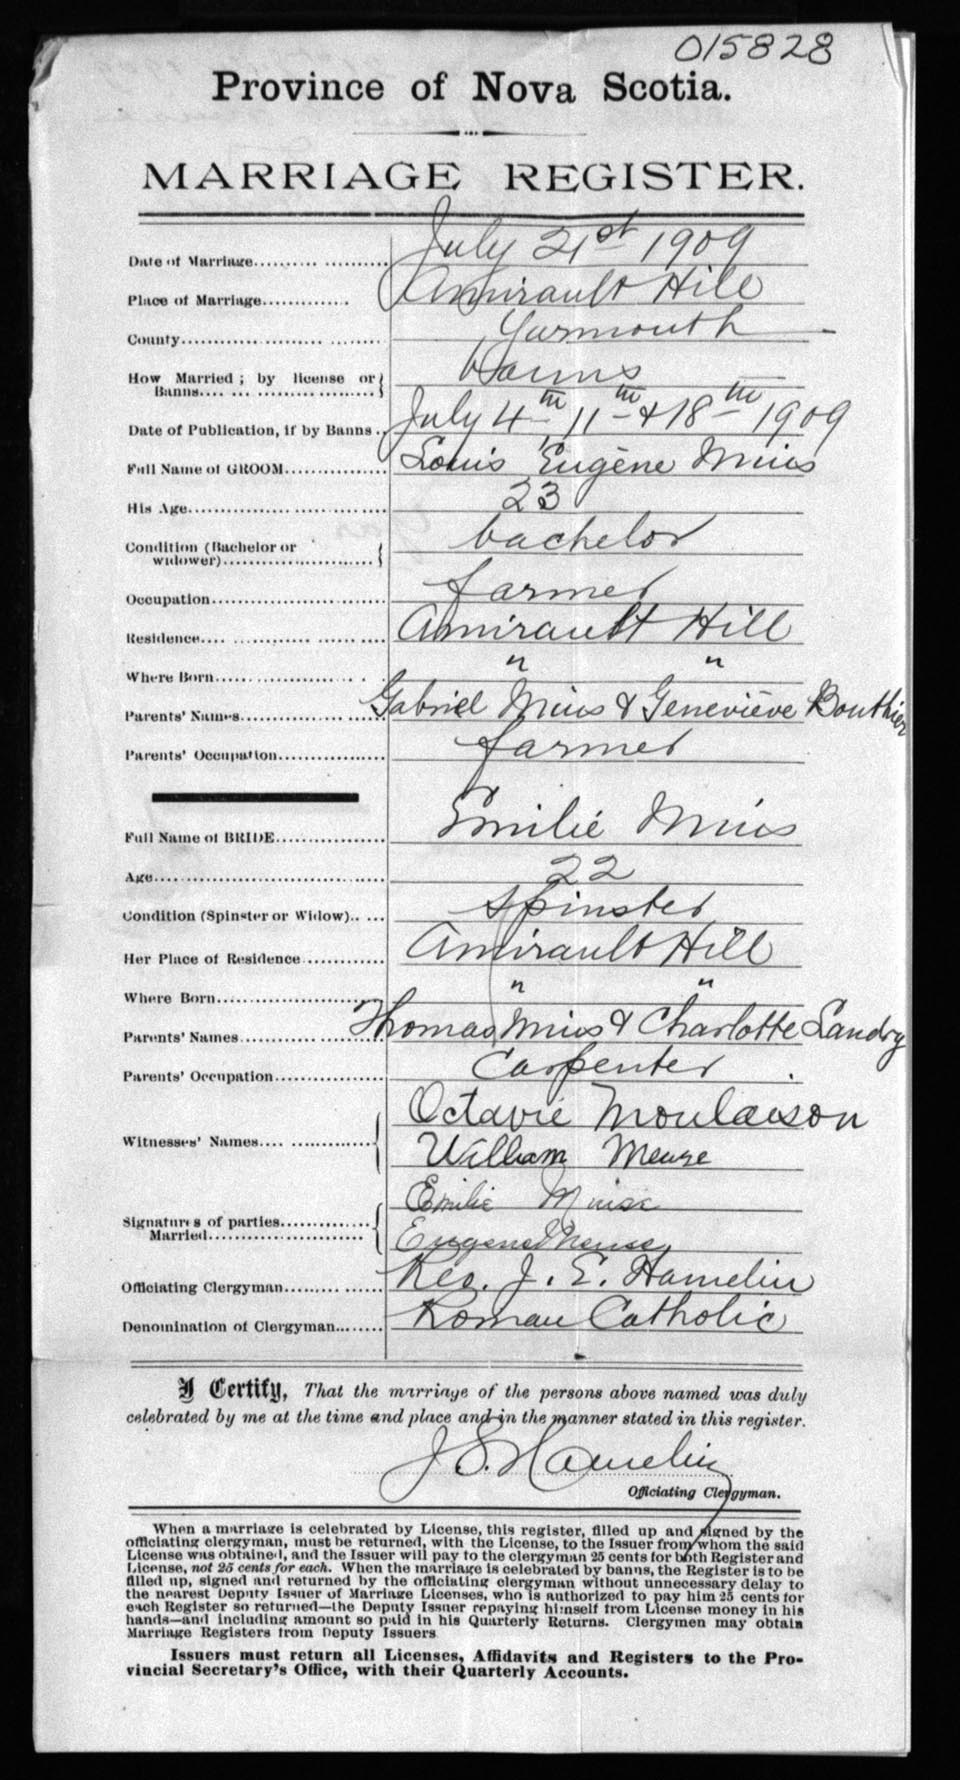 015828
Province of Nova Scotia.
MARRIAGE REGISTER.
Date of Marriage.......... .......... July 21st 1909
Place of Marriage............. Amirault Hill
County........................ ........ Yarmouth
How Married ; by license or Banns.... ... .................. banns
Date of Publication, if by Banns .. July 4th, 11th & 18th 1909
Full Name of GROOM............... Louis Eugène Mius
His Age.................. ............ 23
Condition (Bachelor or widower)....................... bachelor
Occupation.......................... farmer
Residence.... ............ ......... Amirault Hill
Where Born.................... . . " "
Parents' Names..................... Gabriel Mius & Geneviève Bouthier
Parents' Occupation................ farmer
Full Name of BRIDE................ Emilie Mius
Age.................................. 22
Condition (Spinster or Widow).. ... spinster
Her Place of Residence............ Amirault Hill
Where Born....................... " "
Parents' Names..................... Thomas Mius & Charlotte Landry
Parents' Occupation................ Carpenter
Witnesses' Names.... ............. Octavie Moulaison
William Meuse
Signatures of parties Married.............. Emilie Muise
Eugene Meuse
Officiating Clergyman...... ....... Rev. J. E. Hamelin
Denomination of Clergyman........ Roman Catholic
I Certify, That the marriage of the persons above named was duly
celebrated by me at the time and place and in the manner stated in this register.
J. E. Hamelin
Officiating Clergyman.
When a marriage is celebrated by License, this register, filled up and signed by the
officiating clergyman, must be returned, with the License, to the Issuer from whom the said
License was obtained, and the Issuer will pay to the clergyman 25 cents for both Register and
License, not 25 cents for each. When the marriage is celebrated by banns, the Register is to be
filled up, signed and returned by the officiating clergyman without unnecessary delay to
the nearest Deputy Issuer of Marriage Licenses, who is authorized to pay him 25 cents for
each Register so returned—the Deputy Issuer repaying himself from License money in his
hands—and including amount so paid in his Quarterly Returns. Clergymen may obtain
Marriage Registers from Deputy Issuers
Issuers must return all Licenses, Affidavits and Registers to the Pro-
vincial Secretary's Office, with their Quarterly Accounts.